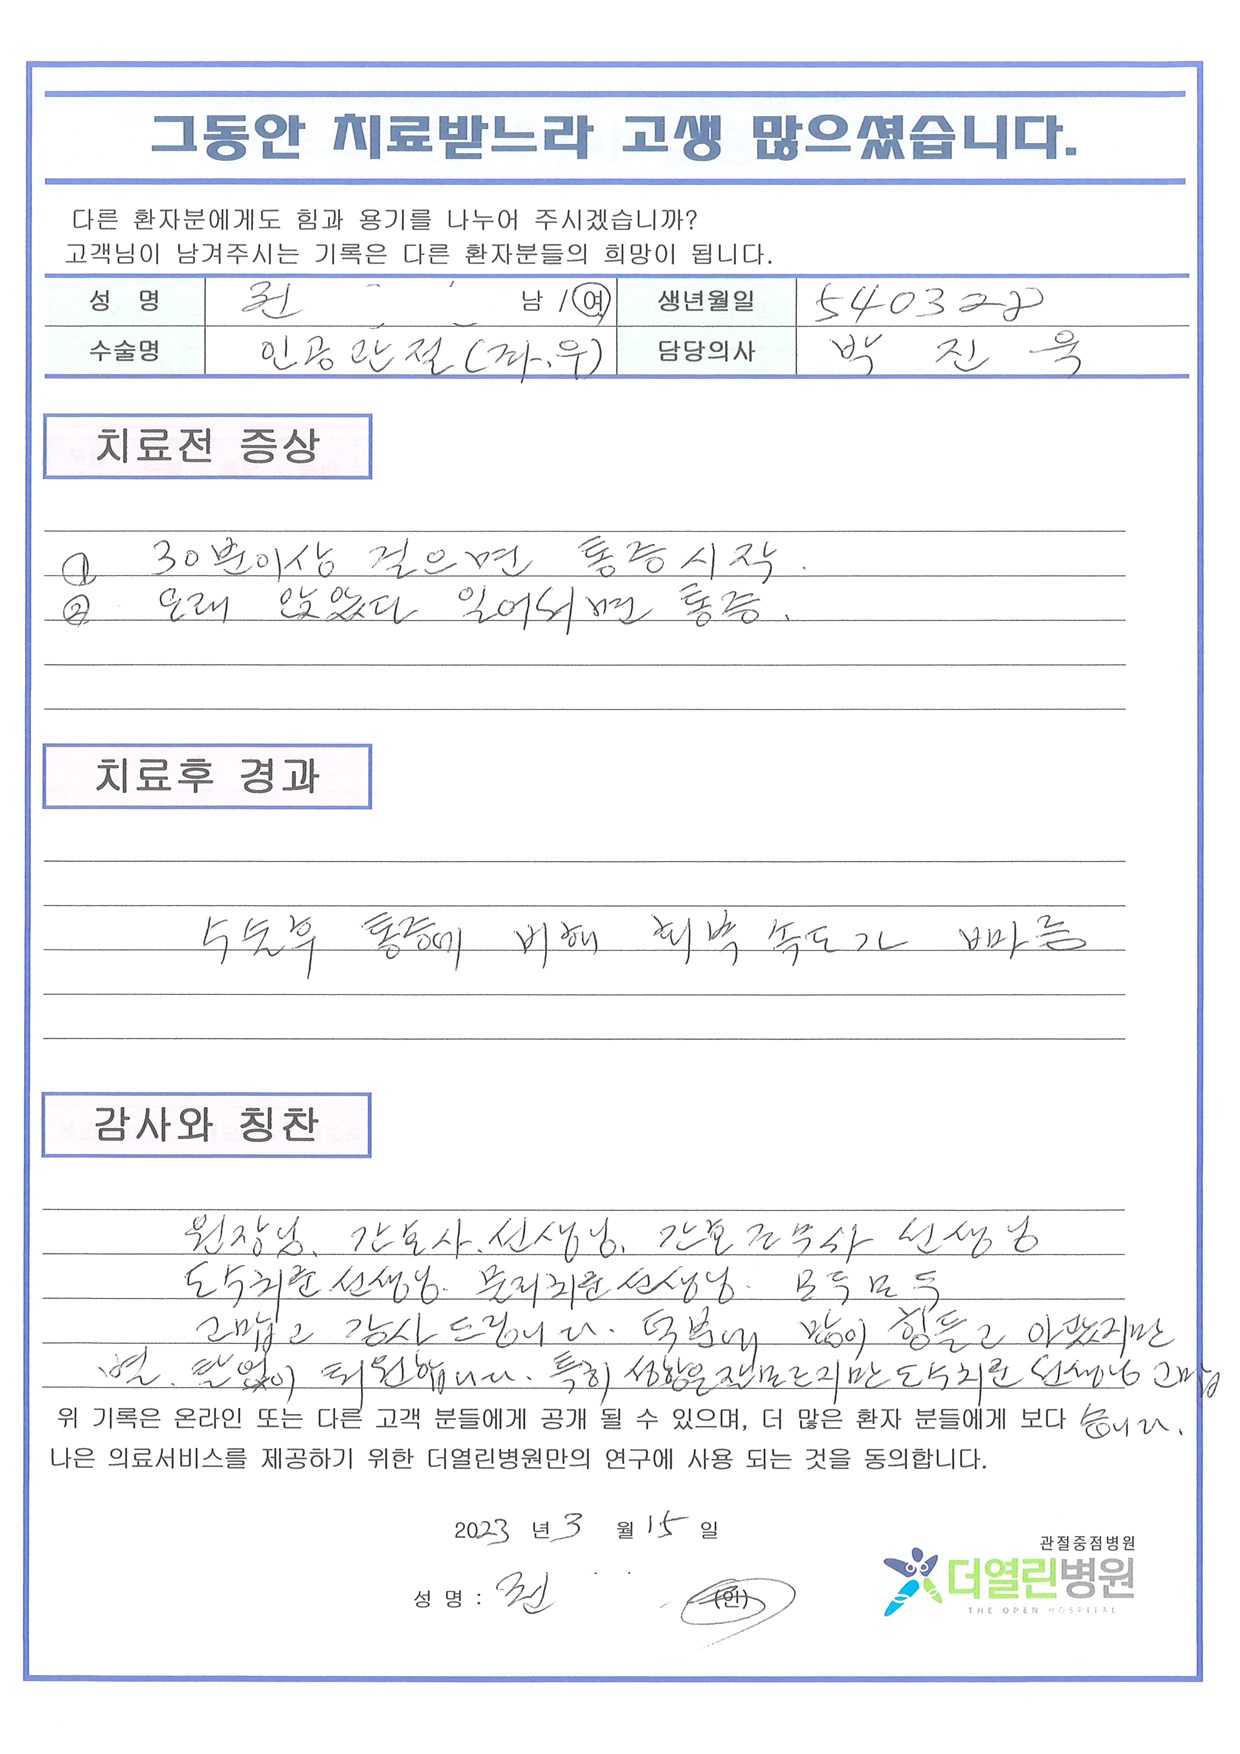 그동안 치료받느라 고생 많으셨습니다.
다른 환자분에게도 힘과 용기를 나누어 주시겠습니까?
고객님이 남겨주시는 기록은 다른 환자분들의 희망이 됩니다.
성 명 권 남 / 여 생년월일 540328
수술명 인공관절(좌.우) 담당의사 박 진 욱
치료전 증상
① 30분이상 걸으면 통증시작.
② 오래 앉았다 일어서면 통증.
치료후 경과
수술후 통증에 비해 회복속도가 빠마름
감사와 칭찬
원장님, 간호사.선생님, 간호조무사 선생님
도수치료선생님. 물리치료선생님. 모두모두
고맙고 감사드립니다. 덕분에 많이 힘들고 아팠지만
별. 탈없이 퇴원합니다. 특히 성함은잘모르지만 도수치료 선생님 고맙
습니다.
위 기록은 온라인 또는 다른 고객 분들에게 공개 될 수 있으며, 더 많은 환자 분들에게 보다
나은 의료서비스를 제공하기 위한 더열린병원만의 연구에 사용 되는 것을 동의합니다.
2023 년 3 월 15 일
관절중점병원
더열린병원
THE OPEN HOSPITAL
성 명 : 권 (인)